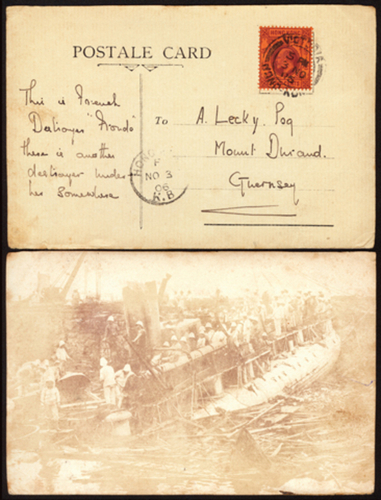 POSTALE CARD
VICTORIA
This is French
Destroyer "Fronde"
there is another
destroyer under
her somewhere
To
A. Lecky Esq
Mount Durand.
Guernsey
HONG
F
NO 3
06
K.B